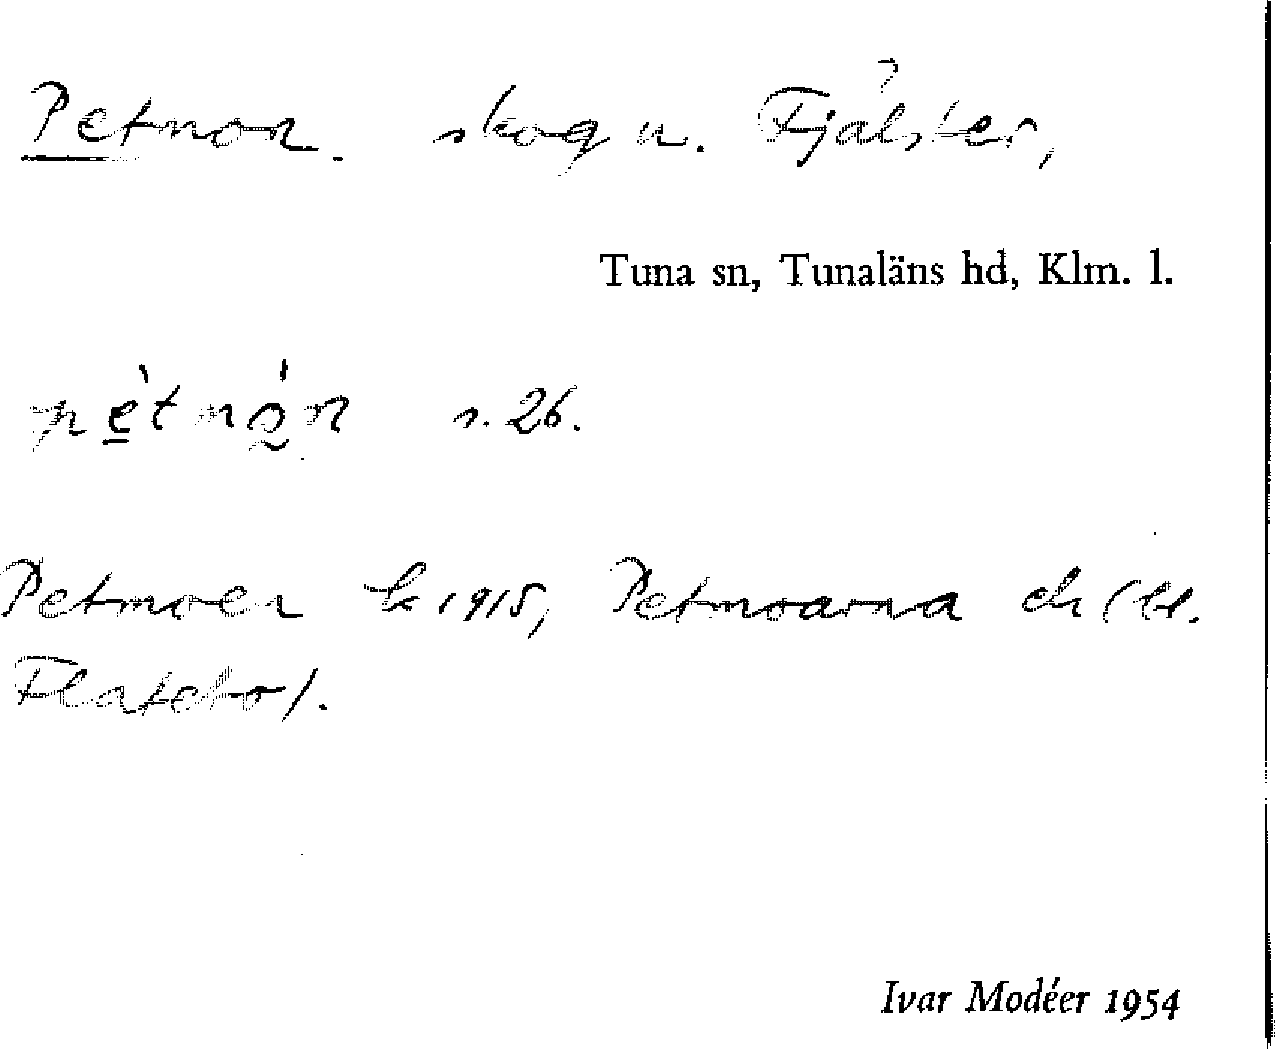 Petmon. skog u. Fjälster,
Tuna sn, Tunaläns hd, Klm. l.
s. 26.
Petmoen k 1915, Petmoarna ek (bl.
Flatebo).
Ivar Modéer 1954